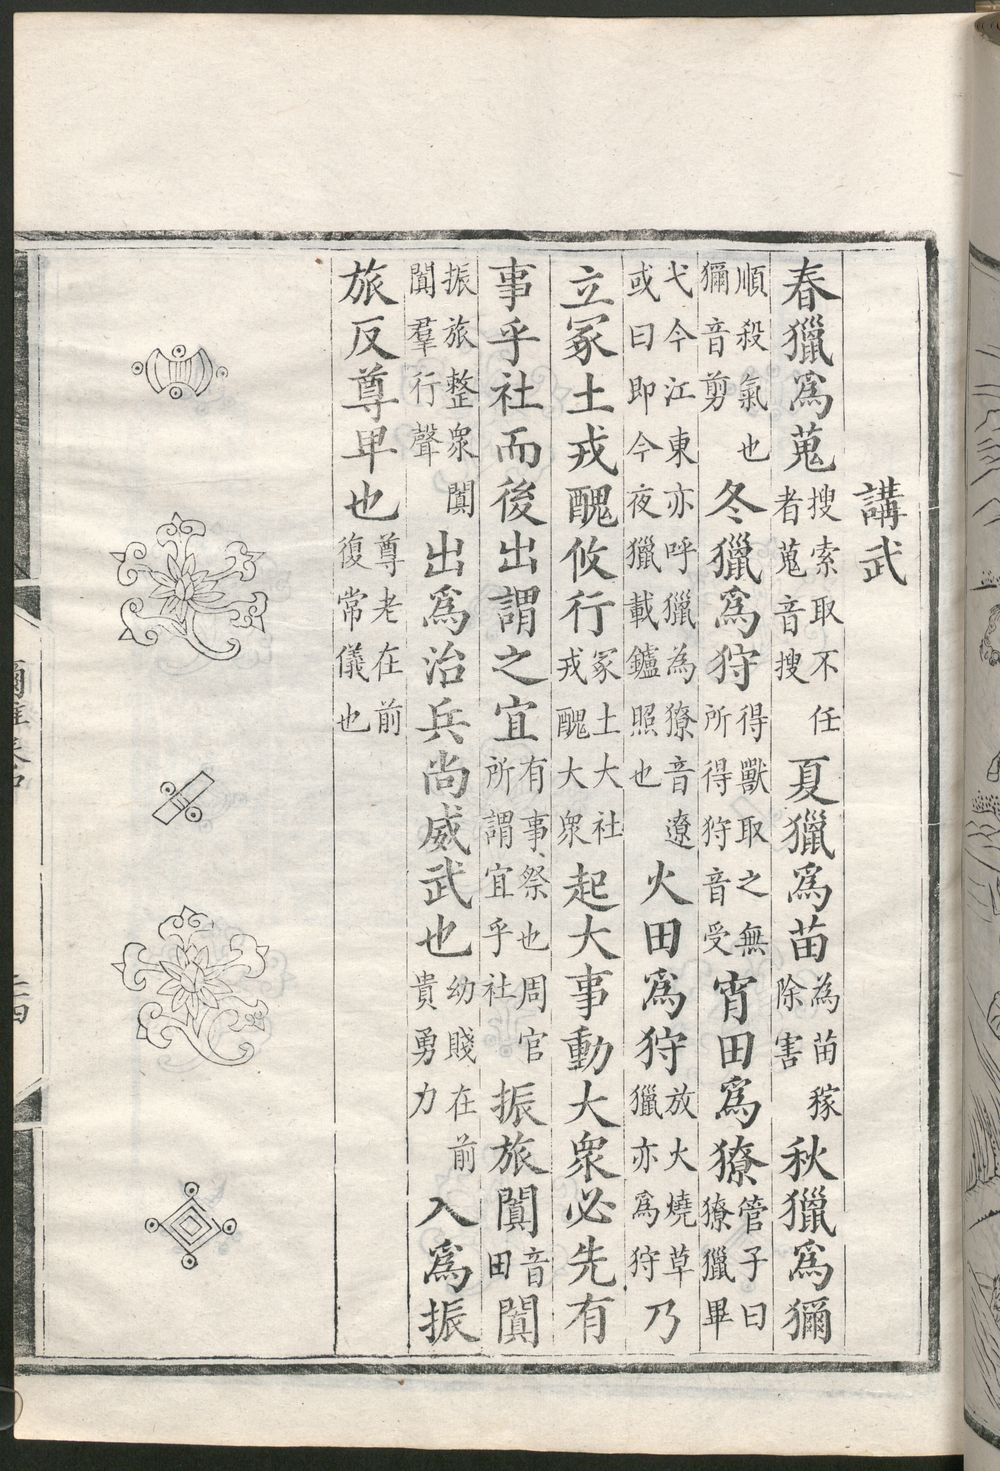 講武
春獵爲蒐搜索取不任者蒐音搜夏獵爲苗為苗稼除害秋獵爲獮
順殺氣也獮音剪冬獵爲狩得獸取之無所得狩音受宵田爲獠管子曰獠獵畢
弋今江東亦呼獵為獠音遼或曰即今夜獵載鑪照也火田爲狩放火燒草獵亦爲狩乃
立冢土戎醜攸行冢土大社戎醜大衆起大事動大衆必先有
事乎社而後出謂之宜有事祭也周官所謂宜乎社振旅闐音田闐
振旅整衆闐闐羣行聲出爲治兵尚威武也幼賤在前貴勇力入爲振
旅反尊卑也尊老在前復常儀也